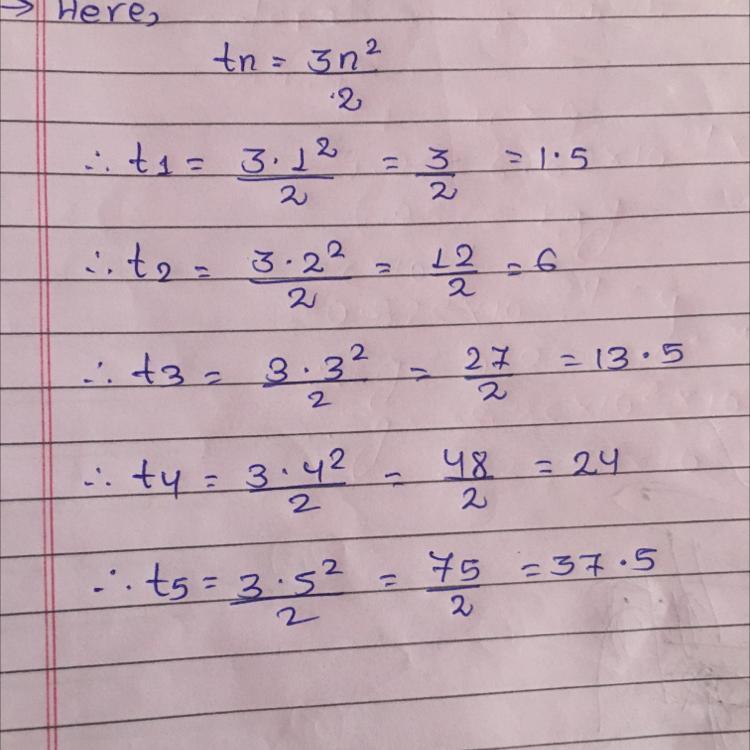 → Here,
tn = 3n²
·2
∴ t1 = 3·1²/2 = 3/2 = 1·5
∴ t2 = 3·2²/2 = 12/2 = 6
∴ t3 = 3·3²/2 = 27/2 = 13·5
∴ t4 = 3·4²/2 = 48/2 = 24
∴ t5 = 3·5²/2 = 75/2 = 37·5